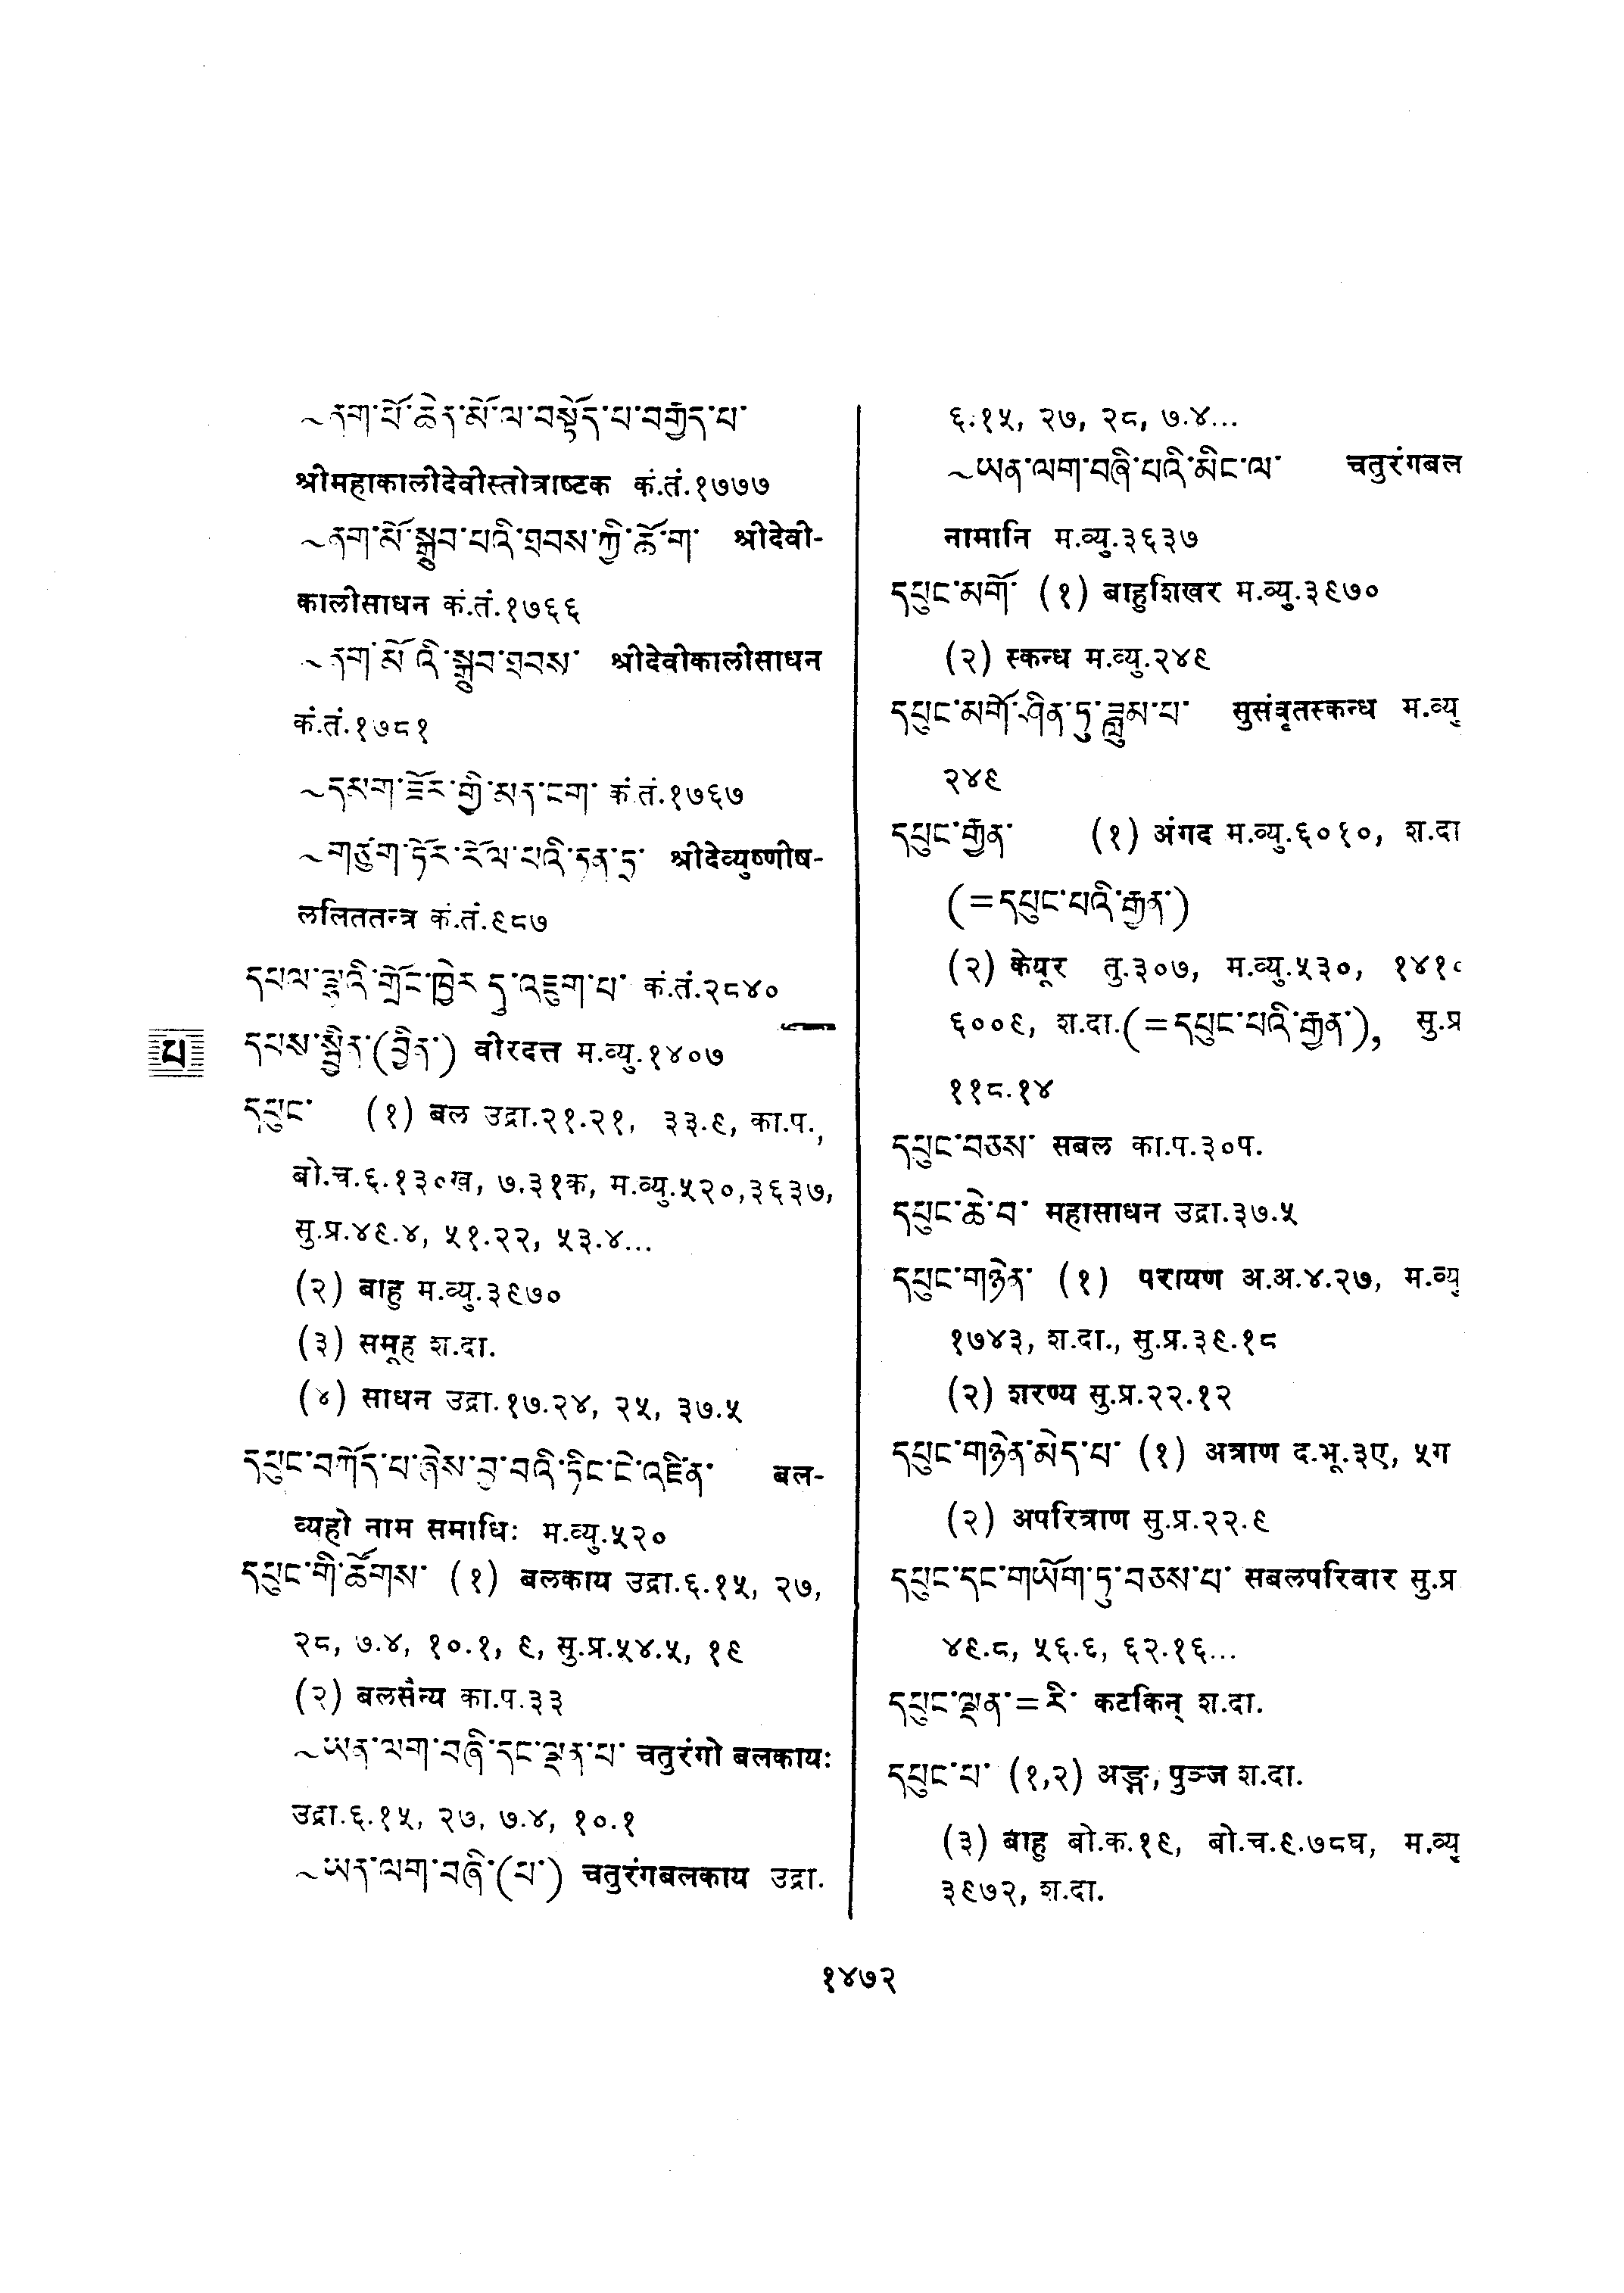 ~ནག་པོ་ཆེན་མོ་ལ་བསྟོད་པ་བརྒྱད་པ་
श्रीमहाकालीदेवीस्तोत्राष्टक कं.तं.१७७७
~ནག་མོ་སྒྲུབ་པའི་ཐབས་ཀྱི་ཆོ་ག་ श्रीदेवी-
कालीसाधन कं.तं.१७६६
~ནག་མོ་འི་སྒྲུབ་ཐབས་ श्रीदेवीकालीसाधन
कं.तं.१७८१
~དམག་ཟོར་གྱི་མན་ངག་ कं.तं.१७६७
~གཙུག་ཏོར་རོལ་པའི་ཏན་ཏྲ་ श्रीदेव्युष्णीष-
ललिततन्त्र कं.तं.९८७
དཔལ་ལྷའི་གྲོང་ཁྱེར་དུ་འཇུག་པ་ कं.तं.२८४०
པ
དཔས་སྦྱིན་(བྱིན་) वीरदत्त म.व्यु.१४०७
དཔུང་ (१) बल उद्रा.२१.२१, ३३.९, का.प.,
बो.च.६.१३०ख, ७.३१क, म.व्यु.५२०,३६३७,
सु.प्र.४९.४, ५१.२२, ५३.४...
(२) बाहु म.व्यु.३९७०
(३) समूह श.दा.
(४) साधन उद्रा.१७.२४, २५, ३७.५
དཔུང་བཀོད་པ་ཞེས་བྱ་བའི་ཏིང་ངེ་འཛིན་ बल-
व्यहो नाम समाधिः म.व्यु.५२०
དཔུང་གི་ཚོགས་ (१) बलकाय उद्रा.६.१५, २७,
२८, ७.४, १०.१, ९, सु.प्र.५४.५, १९
(२) बलसैन्य का.प.३३
~ཡན་ལག་བཞི་དང་ལྡན་པ་ चतुरंगो बलकायः
उद्रा.६.१५, २७, ७.४, १०.१
~ཡན་ལག་བཞི་(པ་) चतुरंगबलकाय उद्रा.
६.१५, २७, २८, ७.४...
~ཡན་ལག་བཞི་པའི་མིང་ལ་ चतुरंगबल
नामानि म.व्यु.३६३७
དཔུང་མགོ་ (१) बाहुशिखर म.व्यु.३९७०
(२) स्कन्ध म.व्यु.२४९
དཔུང་མགོ་ཤིན་ཏུ་ཟླུམ་པ་ सुसंवृतस्कन्ध म.व्यु
२४९
དཔུང་རྒྱན་ (१) अंगद म.व्यु.६०१०, श.दा
(=དཔུང་པའི་རྒྱན་)
(२) केयूर तु.३०७, म.व्यु.५३०, १४१०
६००९, श.दा.(=དཔུང་པའི་རྒྱན་), सु.प्र
११८.१४
དཔུང་བཅས་ सबल का.प.३०प.
དཔུང་ཆེ་བ་ महासाधन उद्रा.३७.५
དཔུང་གཉེན་ (१) परायण अ.अ.४.२७, म.व्यु
१७४३, श.दा., सु.प्र.३९.१८
(२) शरण्य सु.प्र.२२.१२
དཔུང་གཉེན་མེད་པ་ (१) अत्राण द.भू.३ए, ५ग
(२) अपरित्राण सु.प्र.२२.९
དཔུང་དང་གཡོག་ཏུ་བཅས་པ་ सबलपरिवार सु.प्र
४९.८, ५६.६, ६२.१६...
དཔུང་ལྡན་=རི་ कटकिन् श.दा.
དཔུང་པ་ (१,२) अङ्ग, पुञ्ज श.दा.
(३) बाहु बो.क.१९, बो.च.९.७८घ, म.व्यु
३९७२, श.दा.
१४७२